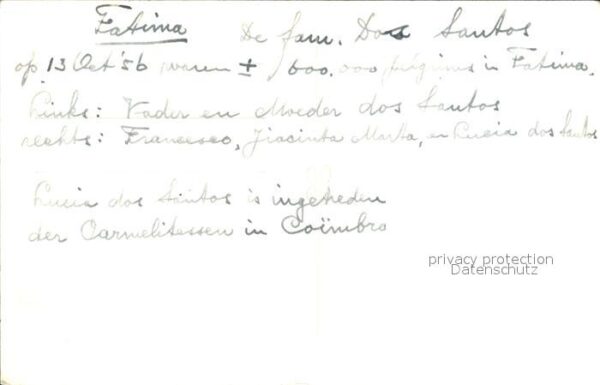 Fatima De fam. Dos Santos
op 13 Oct '56 waren ± 600.000 pilgrims in Fatima.
Links: Vader en Moeder dos Santos
rechts: Francesco, Jiacinta Marta, en Lucia dos Santos
Lucia dos Santos is ingetreden
der Carmelitessen in Coïmbra
privacy protection
Datenschutz